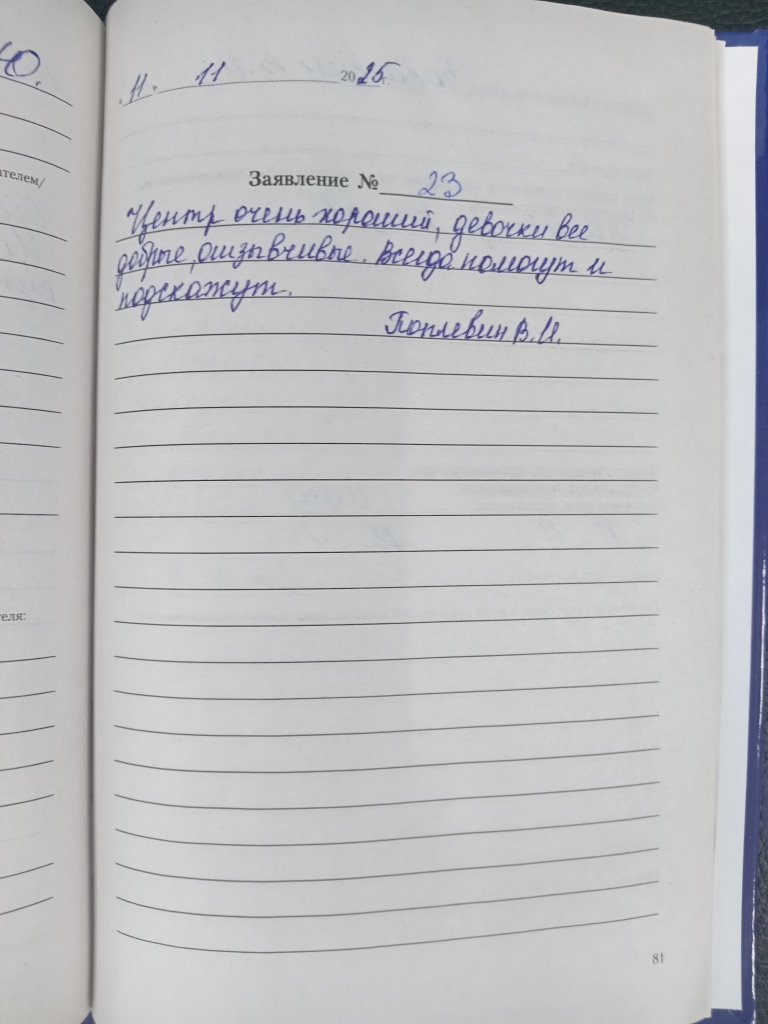 Ю.
ателем/
теля:
11. 11 2025г.
Заявление № 23
Центр очень хороший, девочки все
добрые, отзывчивые. Всегда помогут и
подскажут.
Поплевин В.И.
81